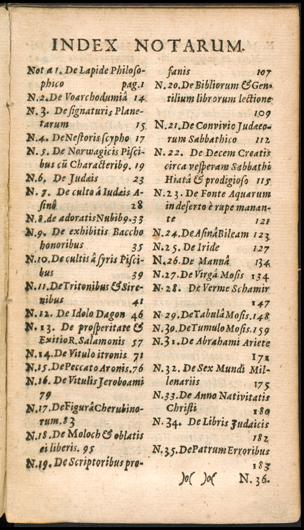 INDEX NOTARUM.
Not a 1. De Lapide Philoso-
phico pag. 1
N. 2. De Voarchodumiâ 14
N. 3. De signaturis Plane-
tarum 15
N. 4. De Nestoris scypho 17
N. 5. De Norwagicis Pisci-
bus cū Characterib9. 19
N. 6. De Judais 23
N. 7. De culto á Iudais A-
sinō 28
N. 8. de adoratis Nubib9. 33
N. 9. De exhibitis Baccho
honoribus 35
N. 10. De cultis â syris Pisci-
bus 39
N. 11. De Tritonibus & Sire-
nibus 41
N. 12. De Idolo Dagon 46
N. 13. De prosperitate &
Exitio R. Salamonis 57
N. 14. De Vitulo 71
N. 15. De Peccato Aronis. 76
N. 16. De Vitulis Jeroboami
79
N. 17. De Figurâ Cherubino-
rum. 83
N. 18. De Moloch & oblatis
ei liberis. 95
N. 19. De Scriptoribus pro-
fanis 107
N. 20. De Bibliorum & Gen-
tilium librorum lectione
109
N. 21. De Convivio Judaeo-
rum Sabbathico 112
N. 22. De Decem Creatis
circa vesperam Sabbathi
Hiatâ & prodigioso 115
N. 23. De Fonte Aquarum
in deserto è rupe manan-
te 121
N. 24. De Asinâ Bileam 123
N. 25. De Iride 127
N. 26. De Mannâ 134
N. 27. De Virgâ Mosis 134
N. 28. De Verme Schamir
147
N. 29. De Tabulâ Mosis. 148
N. 30. De Tumulo Mosis. 159
N. 31. De Abrahami Ariete
171
N. 32. De Sex Mundi Mil-
lenariis 175
N. 33. De Anno Nativitatis
Christi 180
N. 34. De Libris Judaicis
182
N. 35. De Patrum Erroribus
183
)( )( N. 36.